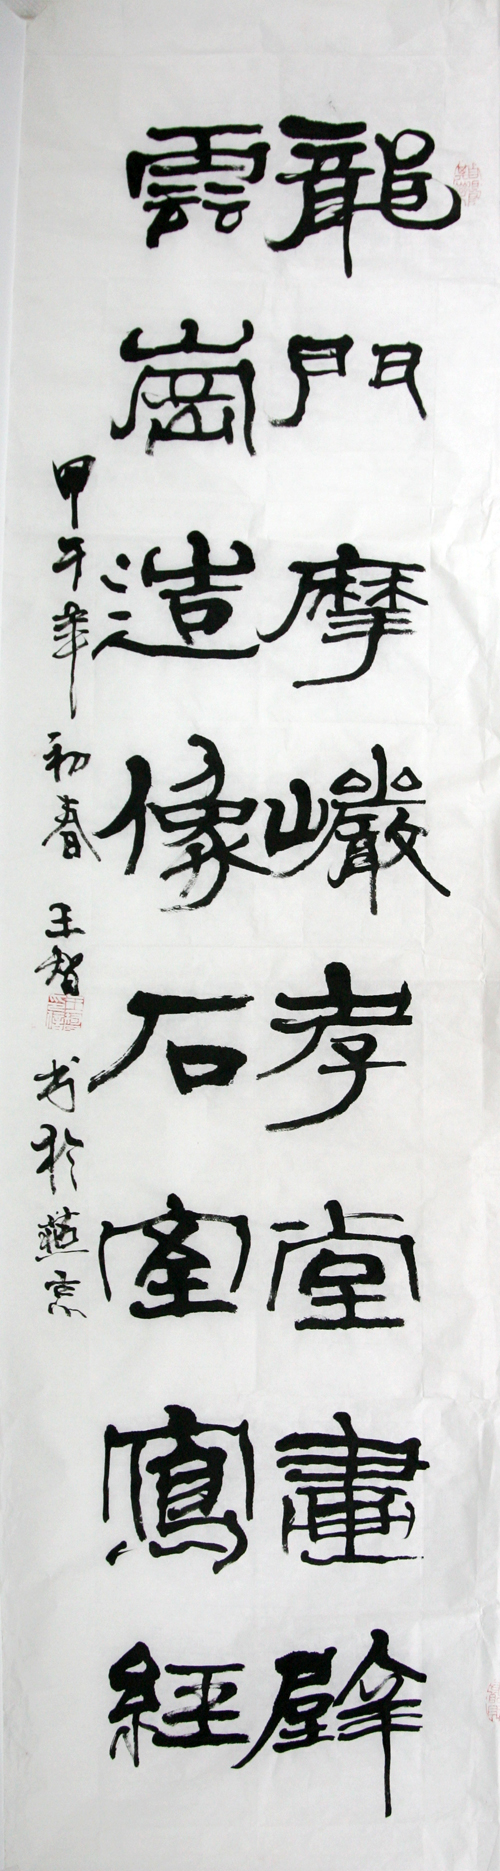 龍門摩巖孝堂畫壁
雲崗造像石室寫經
甲午年初春 王智 书於燕京